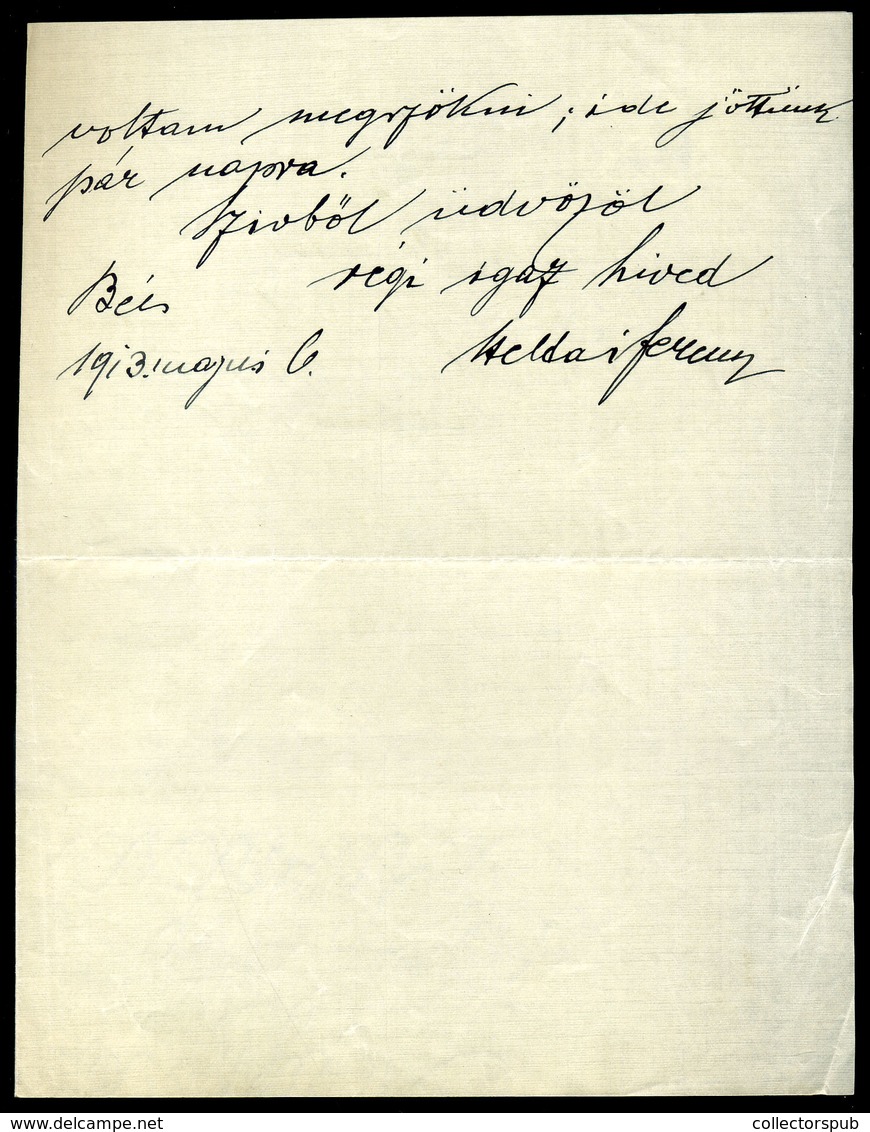 voltam megszökni; ide jöttünk
pár napra.
Szivből üdvözöl
régi igaz hived
Bécs
1913. május 6.
Heltai Ferenc
delcampe.net
collectorspub